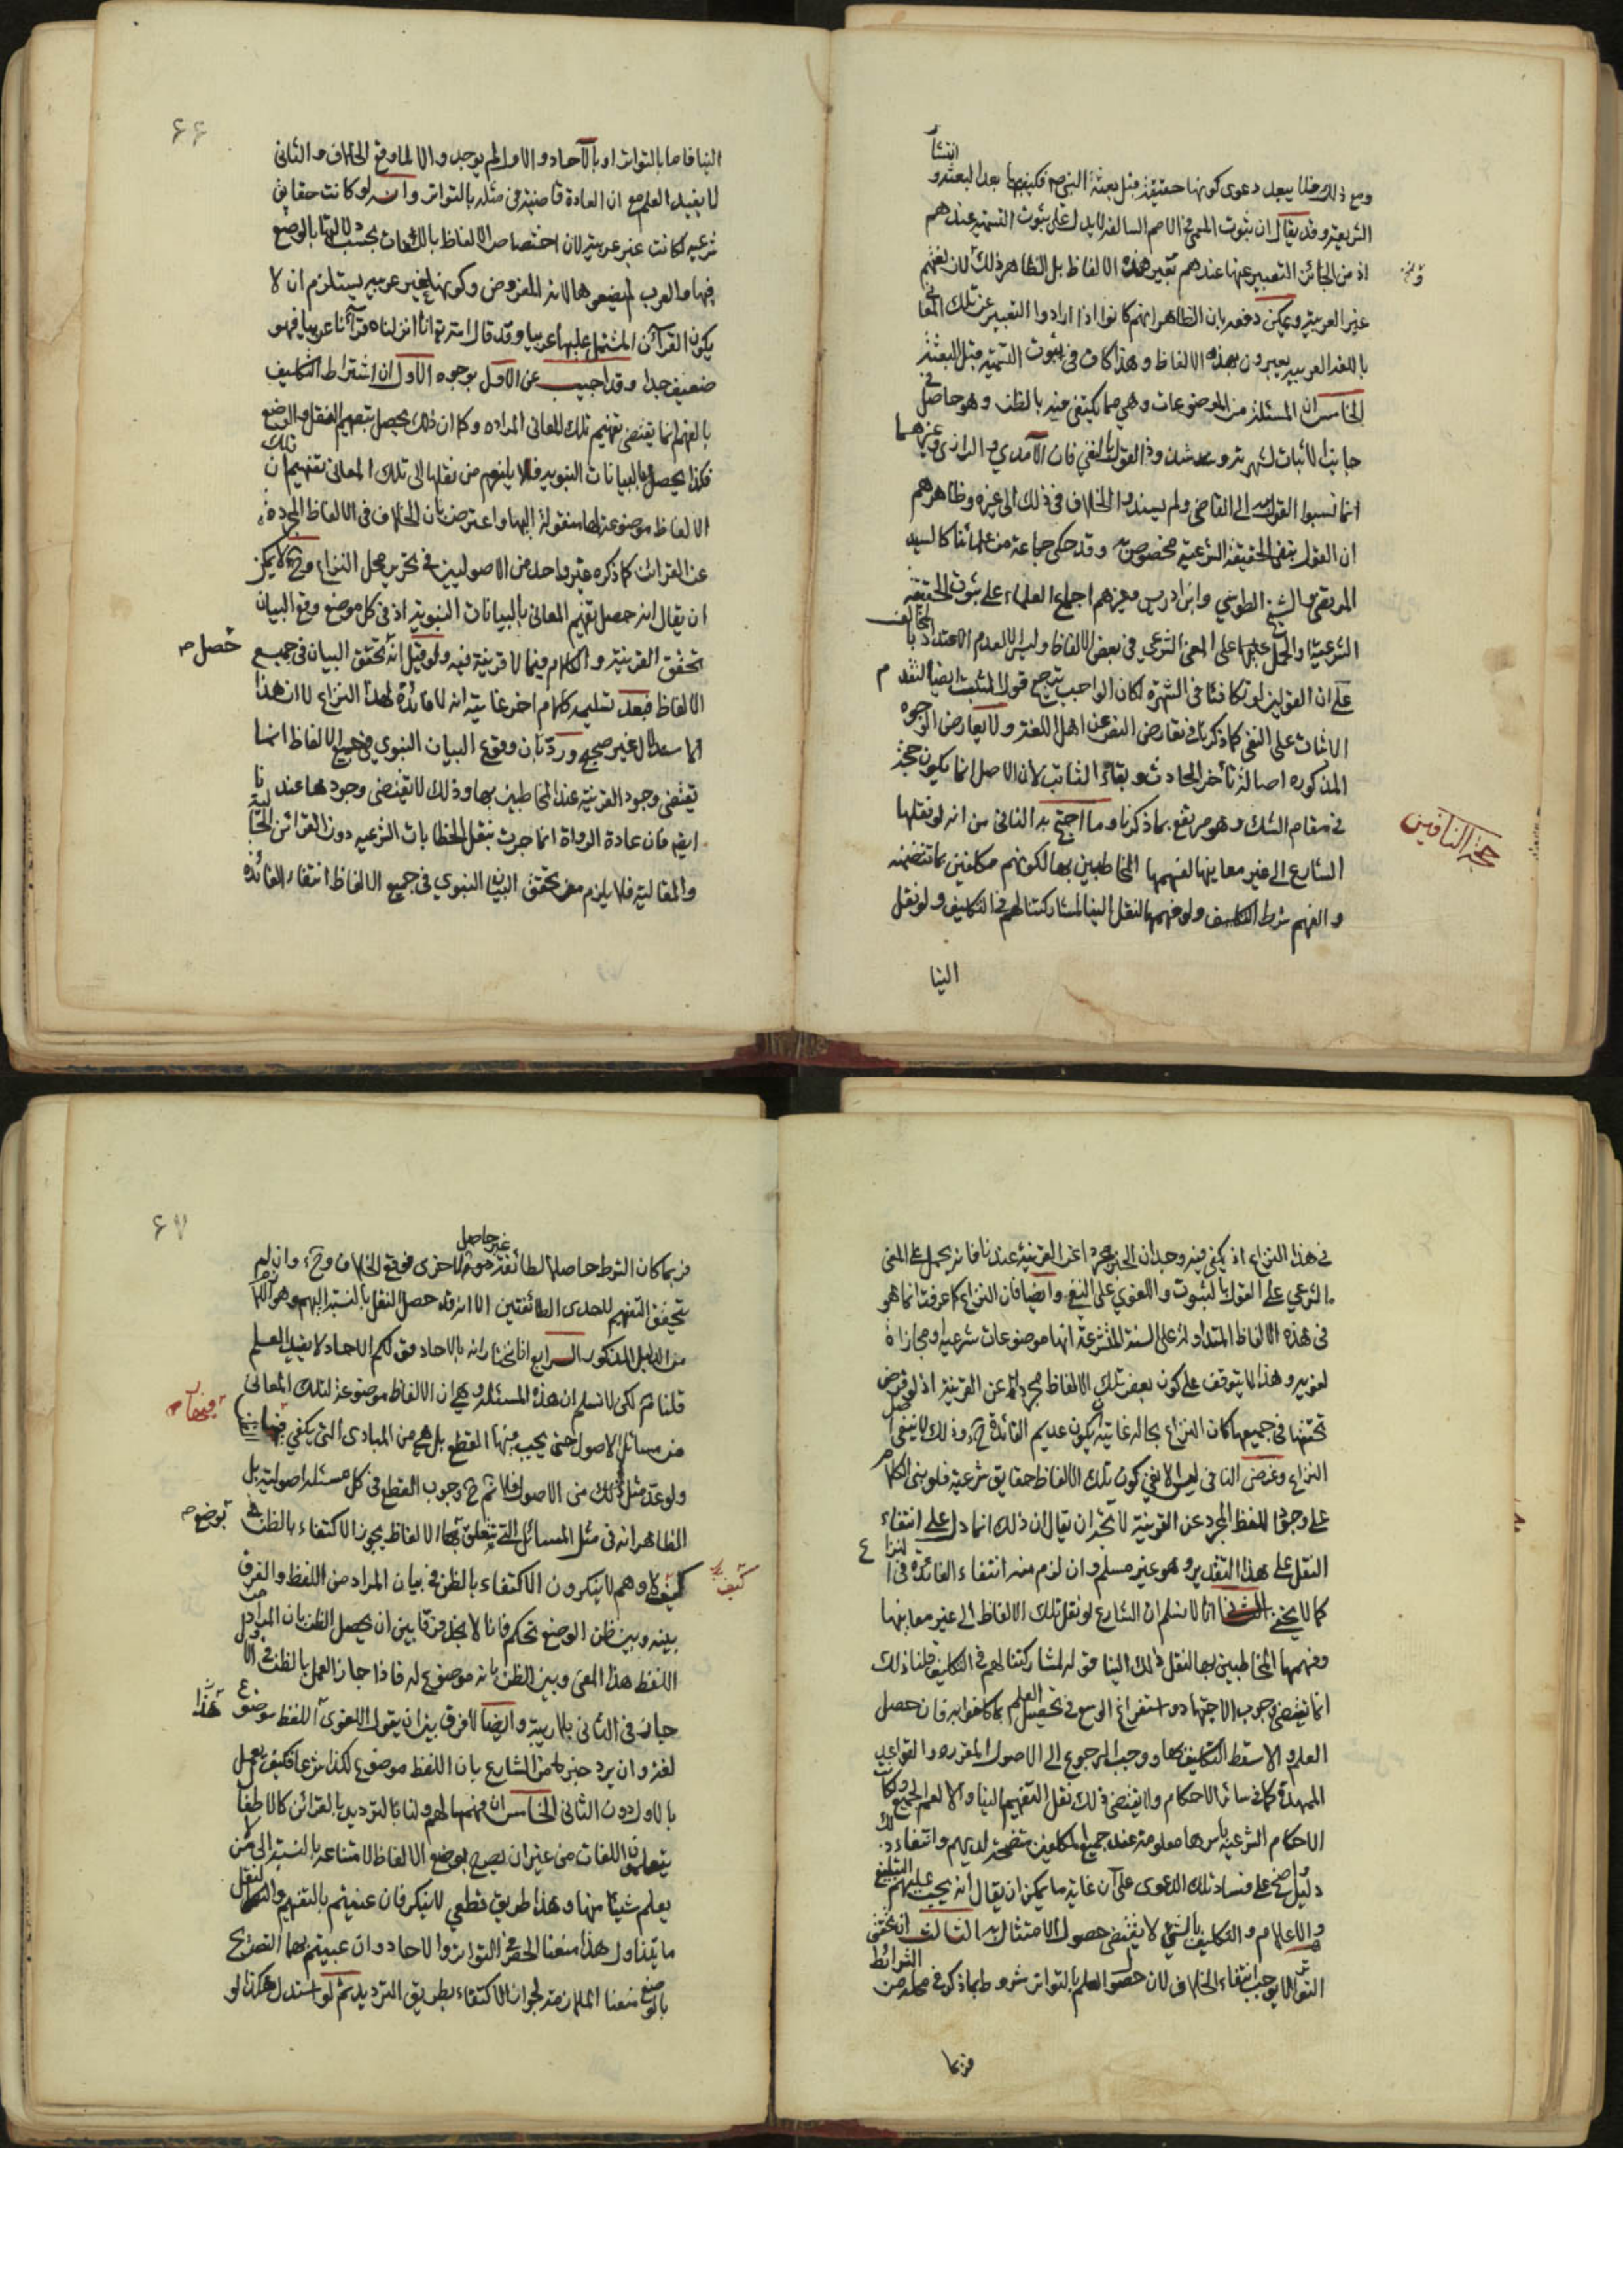 انتشار
ومع ذلك يبعد دعوى كونها حقيقة قبل بعثة النبي ص فكيف بها بعد البعثة و
الشريعة وقد يقال ان ثبوت المعنى في الامم السالفة لا يدل على ثبوت التسمية عندهم
اذ من الجائز التعبير عنها عندهم بغير هذه الالفاظ بل الظاهر ذلك لان لغتهم
غير العربية ويمكن دفعه بان الظاهر انهم كانوا اذا ارادوا التعبير عن تلك المعاني
باللغة العربية يعبرون بهذه الالفاظ وهذا كاف في ثبوت التسمية قبل البعثة
الخامس ان المسئلة من الموضوعات وهي مما يكتفى فيه بالظن وهو حاصل في
جانب الاثبات لشهرته و شذوذ القول بالنفي فان الآمدي والرازي وغيرهما
انما نسبوا القول به الى القاضي ولم يسندوا الخلاف في ذلك الى غيره وظاهرهم
ان القول بنفي الحقيقة الشرعية مخصوص به وقد حكى جماعة من علمائنا كالسيد
المرتضى والشيخ الطوسي وابن ادريس وغيرهم اجماع العلماء على ثبوت الحقيقة
الشرعية والحمل عليها على المعنى الشرعي في بعض الالفاظ وليس الا لعدم الاعتداد بالمخالف
على ان القولين لو تكافئا في الشهرة لكان الواجب ترجيح قول المثبت ايضا لتقدم
الاثبات على النفي كما ذكر في تعارض النقل عن اهل اللغة ولا يعارض الوجوه
المذكورة اصالة تأخر الحادث وبقاء الثابت لان الاصل انما يكون حجة
في مقام الشك وهو مرتفع بما ذكرنا وما احتج به النافي من انه لو نقلها
الشارع الى غير معانيها لفهمها المخاطبين بها لكونهم مكلفين بما تتضمنه
والفهم شرط التكليف ولو فهمها لنقل الينا لمشاركتنا لهم في التكليف ولو نقل
الينا
حجة النافين
۶۶
الينا فاما بالتواتر او بالآحاد والاول لم يوجد والا لما وقع الخلاف والثاني
لا يفيد العلم مع ان العادة قاضية في مثله بالتواتر وانه لو كانت حقايق
شرعية لكانت غير عربية لان اختصاص الالفاظ باللغات بحسب دلالتها بالوضع
فيها والعرب لم يضعوها لانه المفروض وكونها غير عربية يستلزم ان لا
يكون القرآن المشتمل عليها عربيا وقد قال الله تع انا انزلناه قرآنا عربيا فهو
ضعيف جدا وقد اجيب عن الاول بوجوه الاول ان اشتراط التكليف
بالفهم انما يقتضي تفهيم تلك المعاني المراده وكما ان ذلك يحصل بتفهيم النقل والوضع
فكذا يحصل بالبيانات النبوية فلا يلزم من نقلها الى تلك المعاني تفهيم ان تلك
الالفاظ موضوعة لها منقولة اليها واعترض بان الخلاف في الالفاظ المجردة
عن القرائن كما ذكره غير واحد من الاصوليين في تحرير محل النزاع وح لا يمكن
ان يقال انه حصل تفهيم المعاني بالبيانات النبوية اذ في كل موضع وقع البيان
تحقق القرينة والكلام فيما لا قرينة فيه ولو قيل انه تحقق البيان في جميع
حصل ص
الالفاظ فبعد تسليمه كلام اخر غايته انه لا فائدة لهذا النزاع لا ان هذا
الاستدلال غير صحيح وردّ بان وقوع البيان النبوي في جميع الالفاظ انما
يقتضي وجود القرينة عند المخاطبين بها وذلك لا يقتضي وجودها عندنا
ايضا فان عادة الرواة انما جرت بنقل الخطابات الشرعية دون القرائن الحالية
والمقالية فلا يلزم من تحقق البيان النبوي في جميع الالفاظ انتفاء الفائده
في هذا النزاع اذ يكفي فيه وجدان الخبر مجردا عن القرينة عندنا فانه يحمل على المعنى
الشرعي على القول بالثبوت واللغوي على النفي وايضا فان النزاع كما عرفت انما هو
في هذه الالفاظ المتداولة على السنة المتشرعة انها موضوعات شرعية او مجازات
لغوية وهذا لا يتوقف على كون بعض تلك الالفاظ مجردا عن القرينة اذ لو فرض
تحققها في جميعها كان النزاع بحاله غايته ان يكون عديم الفائدة ح وذلك لا ينفي اصل
النزاع وغرض النافي ليس الا نفي كون تلك الالفاظ حقايق شرعية فلو بنى الكلام
على وجود اللفظ المجرد عن القرينة لاتجه ان يقال ان ذلك انما دل على انتفاء
النقل على هذا التقدير وهو غير مسلم وان لزم منه انتفاء الفائدة في النزاع
كما لا يخفى الثاني انا لا نسلم ان الشارع لو نقل تلك الالفاظ الى غير معانيها
وفهمها المخاطبين بها لنقل ذلك الينا قوله لمشاركتنا لهم في التكليف قلنا ذلك
انما يقتضي وجوب الاجتهاد واستفراغ الوسع في تحصيل العلم بما كلفوا به فان حصل
العلم والا سقط التكليف بها ووجب الرجوع الى الاصول المقررة والقواعد
الممهدة كما في سائر الاحكام ولا يقتضي ذلك نقل التفهيم الينا والا لعم الجميع وكان
الاحكام الشرعية باسرها معلومة عند جميع المكلفين متضحة لديهم وانتفاء ذلك
دليل واضح على فساد تلك الدعوى على ان غاية ما يمكن ان يقال انه يجب عليهم التبليغ
والاعلام والتكليف بالشيء لا يقتضي حصول الامتثال به الثالث ان تحقق
التواتر لا يوجب انتفاء الخلاف لان حصول العلم بالتواتر مشروط بما ذكر في محله من الشرائط
فربما
۶۷
فربما كان الشرط حاصلا لطائفة غير حاصل للاخرى فوقع الخلاف وح وان لم
يتحقق التفهيم لاحدى الطائفتين الا انه قد حصل النقل بالنسبة اليهم وهو اللازم
من الدليل المذكور الرابع انا نختار انه بالاحاد قولكم الاحاد لا يفيد العلم
قلنا نعم لكن لا نسلم ان هذه المسئلة وهي ان الالفاظ موضوعة لتلك المعاني
من مسائل الاصول حتى يجب فيها القطع بل هي من المبادى التي يكفي فيها
ولو عدّ مثل ذلك من الاصول فلا نم ح وجوب القطع في كل مسئلة اصولية بل
الظاهر انه في مثل المسائل التي تتعلق بوضع الالفاظ يجوز الاكتفاء بالظن
بوضع ص
كيف لا وهم لا ينكرون الاكتفاء بالظن في بيان المراد من اللفظ والفرق
كيف
بينه وبين ظن الوضع تحكم فانا لا نجد فرقا بين ان يحصل الظن بان المراد من
اللفظ هذا المعنى وبين الظن بانه موضوع له فاذا جاز العمل بالظن في الاول
جاز في الثاني بلا ريبة وايضا لا فرق بين ان يقول اللغوي اللفظ موضوع لهذا
لغة وان يرد خبر من الشارع بان اللفظ موضوع لكذا شرعا فكيف يعمل
بالاول دون الثاني الخامس ان فهمها لهم ولنا بالترديد بالقرائن كالاطفال
يتعلمون اللغات من غير ان يصرح بوضع الالفاظ لامتناعه بالنسبة الى من لا
يعلم شيئا منها وهذا طريق قطعي لا ينكر فان عنيتم بالتفهيم والنقل
ما يتناول هذا منعنا الحصر في التواتر والاحاد وان عنيتم بهما التصريح
بالوضع منعنا الملازمة لجواز الاكتفاء بطريق الترديد ثم لو استدل هكذا لو